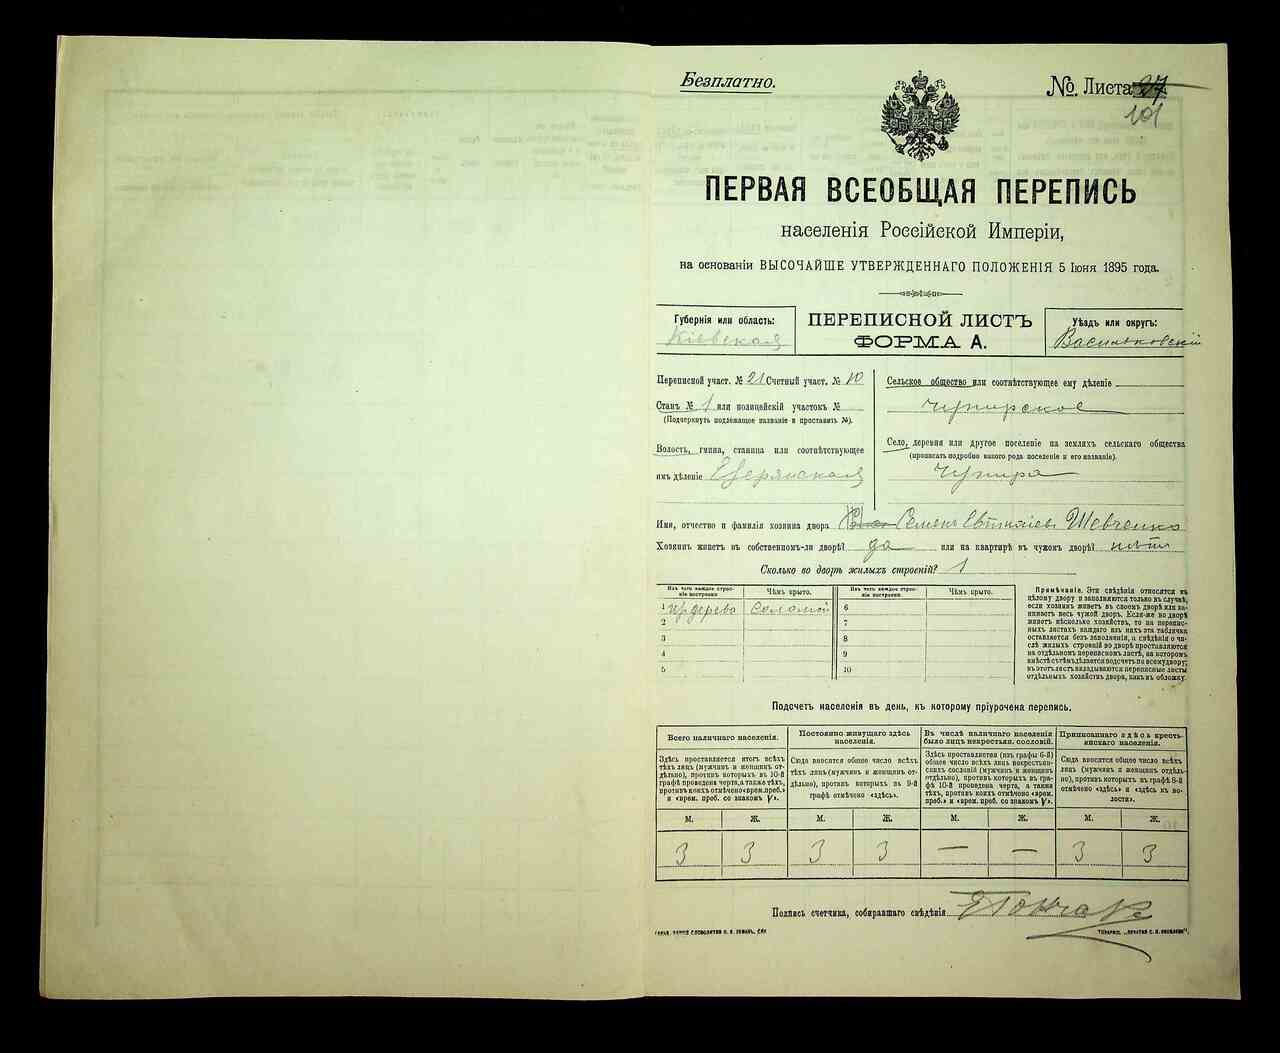 Безплатно.
№. Листа 27
101
ПЕРВАЯ ВСЕОБЩАЯ ПЕРЕПИСЬ
населенія Россійской Имперіи,
на основаніи ВЫСОЧАЙШЕ УТВЕРЖДЕННАГО ПОЛОЖЕНІЯ 5 Іюня 1895 года.
Губернія или область:
Кіевская
ПЕРЕПИСНОЙ ЛИСТЪ
ФОРМА А.
Уѣздъ или округъ:
Васильковскій
Переписной участ. № 21 Счетный участ. № 10
Станъ № 1 или полицейскій участокъ №
(Подчеркнуть подлежащее названіе и проставить №).
Волость, гмина, станица или соотвѣтствующее
имъ дѣленіе Езерянская
Сельское общество или соотвѣтствующее ему дѣленіе
Чупирское
Село, деревня или другое поселеніе на земляхъ сельскаго общества
(прописать подробно какого рода поселеніе и его названіе).
Чупира
Имя, отчество и фамилія хозяина двора Семенъ Шевченко
Хозяинъ живетъ въ собственномъ-ли дворѣ? да или на квартирѣ въ чужомъ дворѣ? нѣтъ
Сколько во дворѣ жилыхъ строеній? 1
Изъ чего каждое строеніе построено. Чѣмъ крыто. Изъ чего каждое строеніе построено. Чѣмъ крыто.
1 дерево Соломой 6
2 7
3 8
4 9
5 10
Примѣчаніе. Эти свѣдѣнія относятся къ
цѣлому двору и заполняются только въ случаѣ,
если хозяинъ живетъ въ своемъ дворѣ или занимаетъ
весь чужой дворъ. Если-же во дворѣ
живетъ нѣсколько хозяйствъ, то на переписныхъ
листахъ каждаго изъ нихъ эта табличка
оставляется безъ заполненія, а свѣдѣнія о числѣ
жилыхъ строеній во дворѣ проставляются
на отдѣльномъ переписномъ листѣ, на которомъ
вмѣстѣ съ тѣмъ дѣлается подсчетъ по всему двору;
въ этотъ листъ вкладываются переписные листы
отдѣльныхъ хозяйствъ двора, какъ въ обложку.
Подсчетъ населенія въ день, къ которому пріурочена перепись.
Всего наличнаго населенія.
Здѣсь проставляется итогъ всѣхъ
тѣхъ лицъ (мужчинъ и женщинъ отдѣльно),
противъ которыхъ въ 10-й
графѣ проведена черта, а также тѣхъ,
противъ коихъ отмѣчено «врем. преб.»
и «врем. преб. со знакомъ V».
Постоянно живущаго здѣсь
населенія.
Сюда вносится общее число всѣхъ
тѣхъ лицъ (мужчинъ и женщинъ отдѣльно),
противъ которыхъ въ 9-й
графѣ отмѣчено «здѣсь».
Въ числѣ наличнаго населенія
было лицъ некрестьян. сословій.
Здѣсь проставляется (изъ графы 6-й)
общее число всѣхъ лицъ некрестьянскихъ
сословій (мужчинъ и женщинъ
отдѣльно), противъ которыхъ въ графѣ
10-й проведена черта, а также
тѣхъ, противъ коихъ отмѣчено «врем.
преб.» и «врем. преб. со знакомъ V».
Приписаннаго здѣсь крестьянскаго
населенія.
Сюда вносится общее число всѣхъ
лицъ (мужчинъ и женщинъ отдѣльно),
противъ которыхъ въ графѣ 8-й
отмѣчено «здѣсь» и «здѣсь въ волости».
М. Ж. М. Ж. М. Ж. М. Ж.
3 3 3 3 — — 3 3
Подпись счетчика, собиравшаго свѣдѣнія